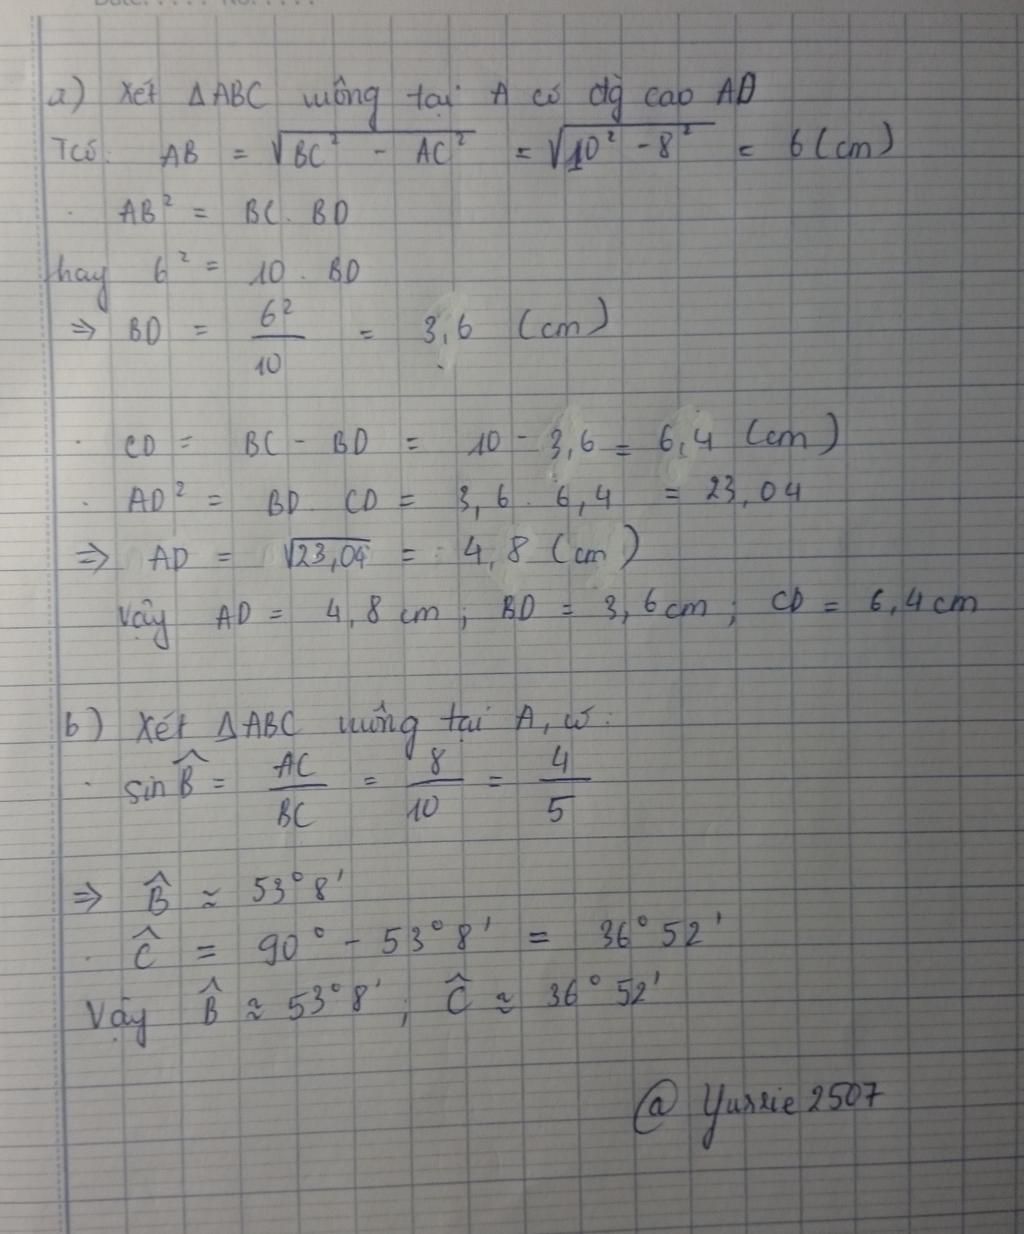 a) Xét ΔABC vuông tại A có đg cao AD
Tcó: AB = √(BC² - AC²) = √(10² - 8²) = 6 (cm)
· AB² = BC. BD
hay 6² = 10. BD
⇒ BD = 6²/10 = 3,6 (cm)
· CD = BC - BD = 10 - 3,6 = 6,4 (cm)
· AD² = BD. CD = 3,6. 6,4 = 23,04
⇒ AD = √23,04 = 4,8 (cm)
Vậy AD = 4,8 cm; BD = 3,6cm; CD = 6,4cm
b) Xét ΔABC vuông tại A, có:
· sin B̂ = AC/BC = 8/10 = 4/5
⇒ B̂ ≈ 53°8'
· Ĉ = 90° - 53°8' = 36°52'
Vậy B̂ ≈ 53°8'; Ĉ ≈ 36°52'
@ Yurrie 2507